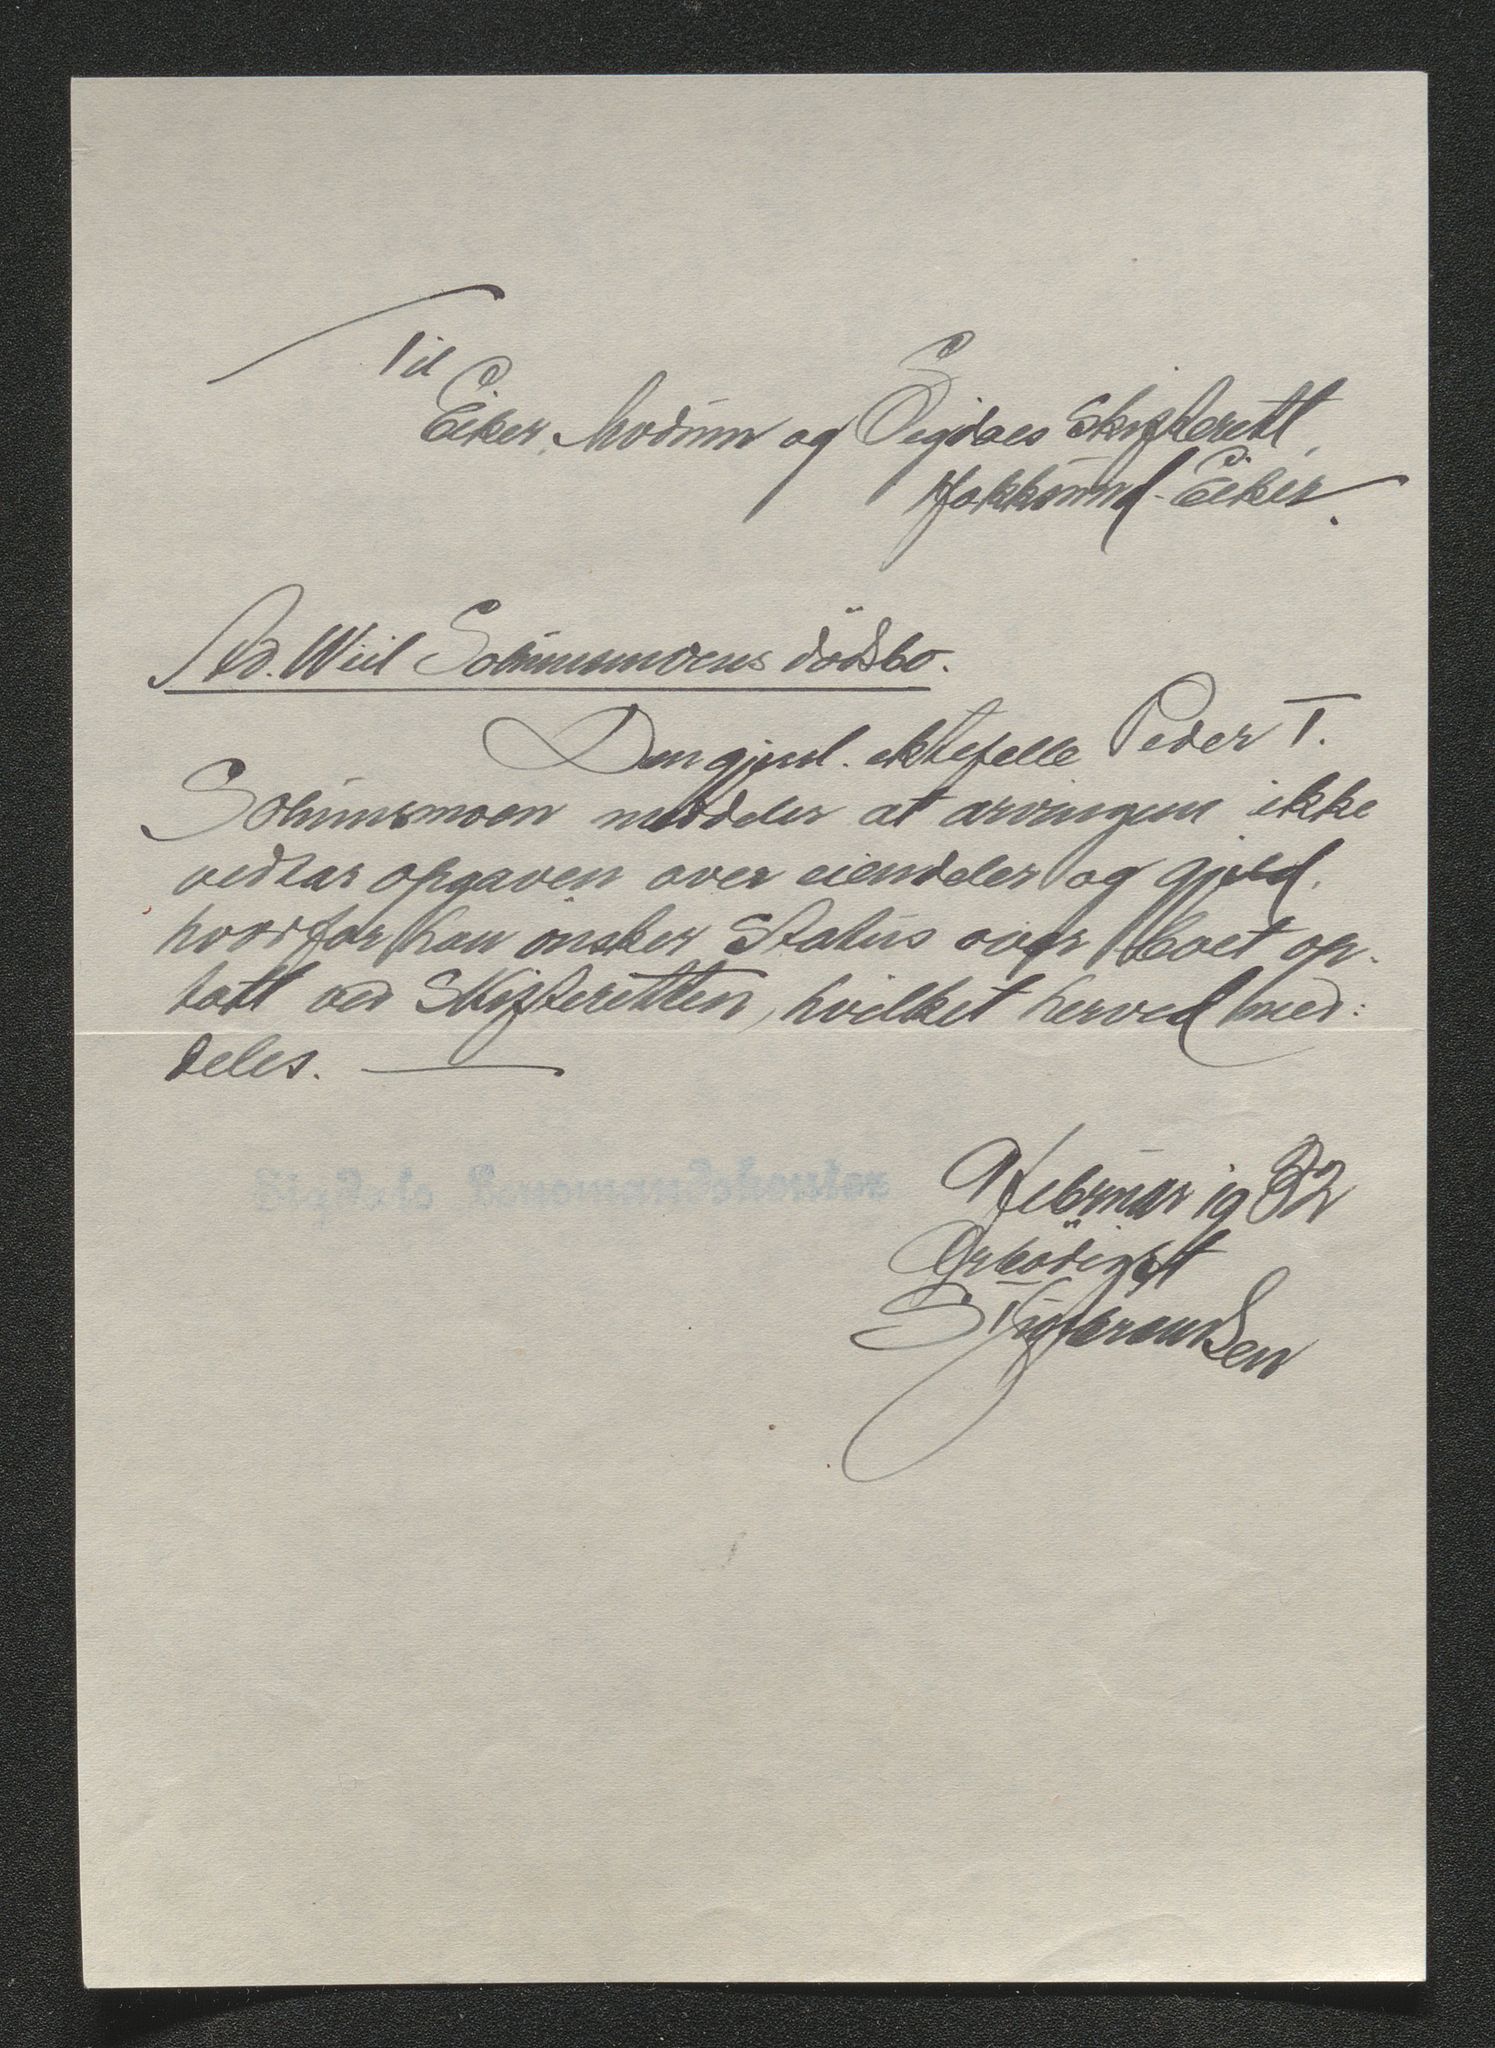 Til
Eiker, Modum og Sigdals Skifterett,
Hokksund - Eiker.
Ad. Wiil Solumsmoens dödsbo.
Den gjenl. ektefelle Peder T.
Solumsmoen meddeler at arvingene ikke
vedtar opgaven over eiendeler og gjeld,
hvorfor han önsker Status over boet op-
tatt ved Skifteretten, hvilket herved med:
deles.
9 februar 1932
Ærbödigst